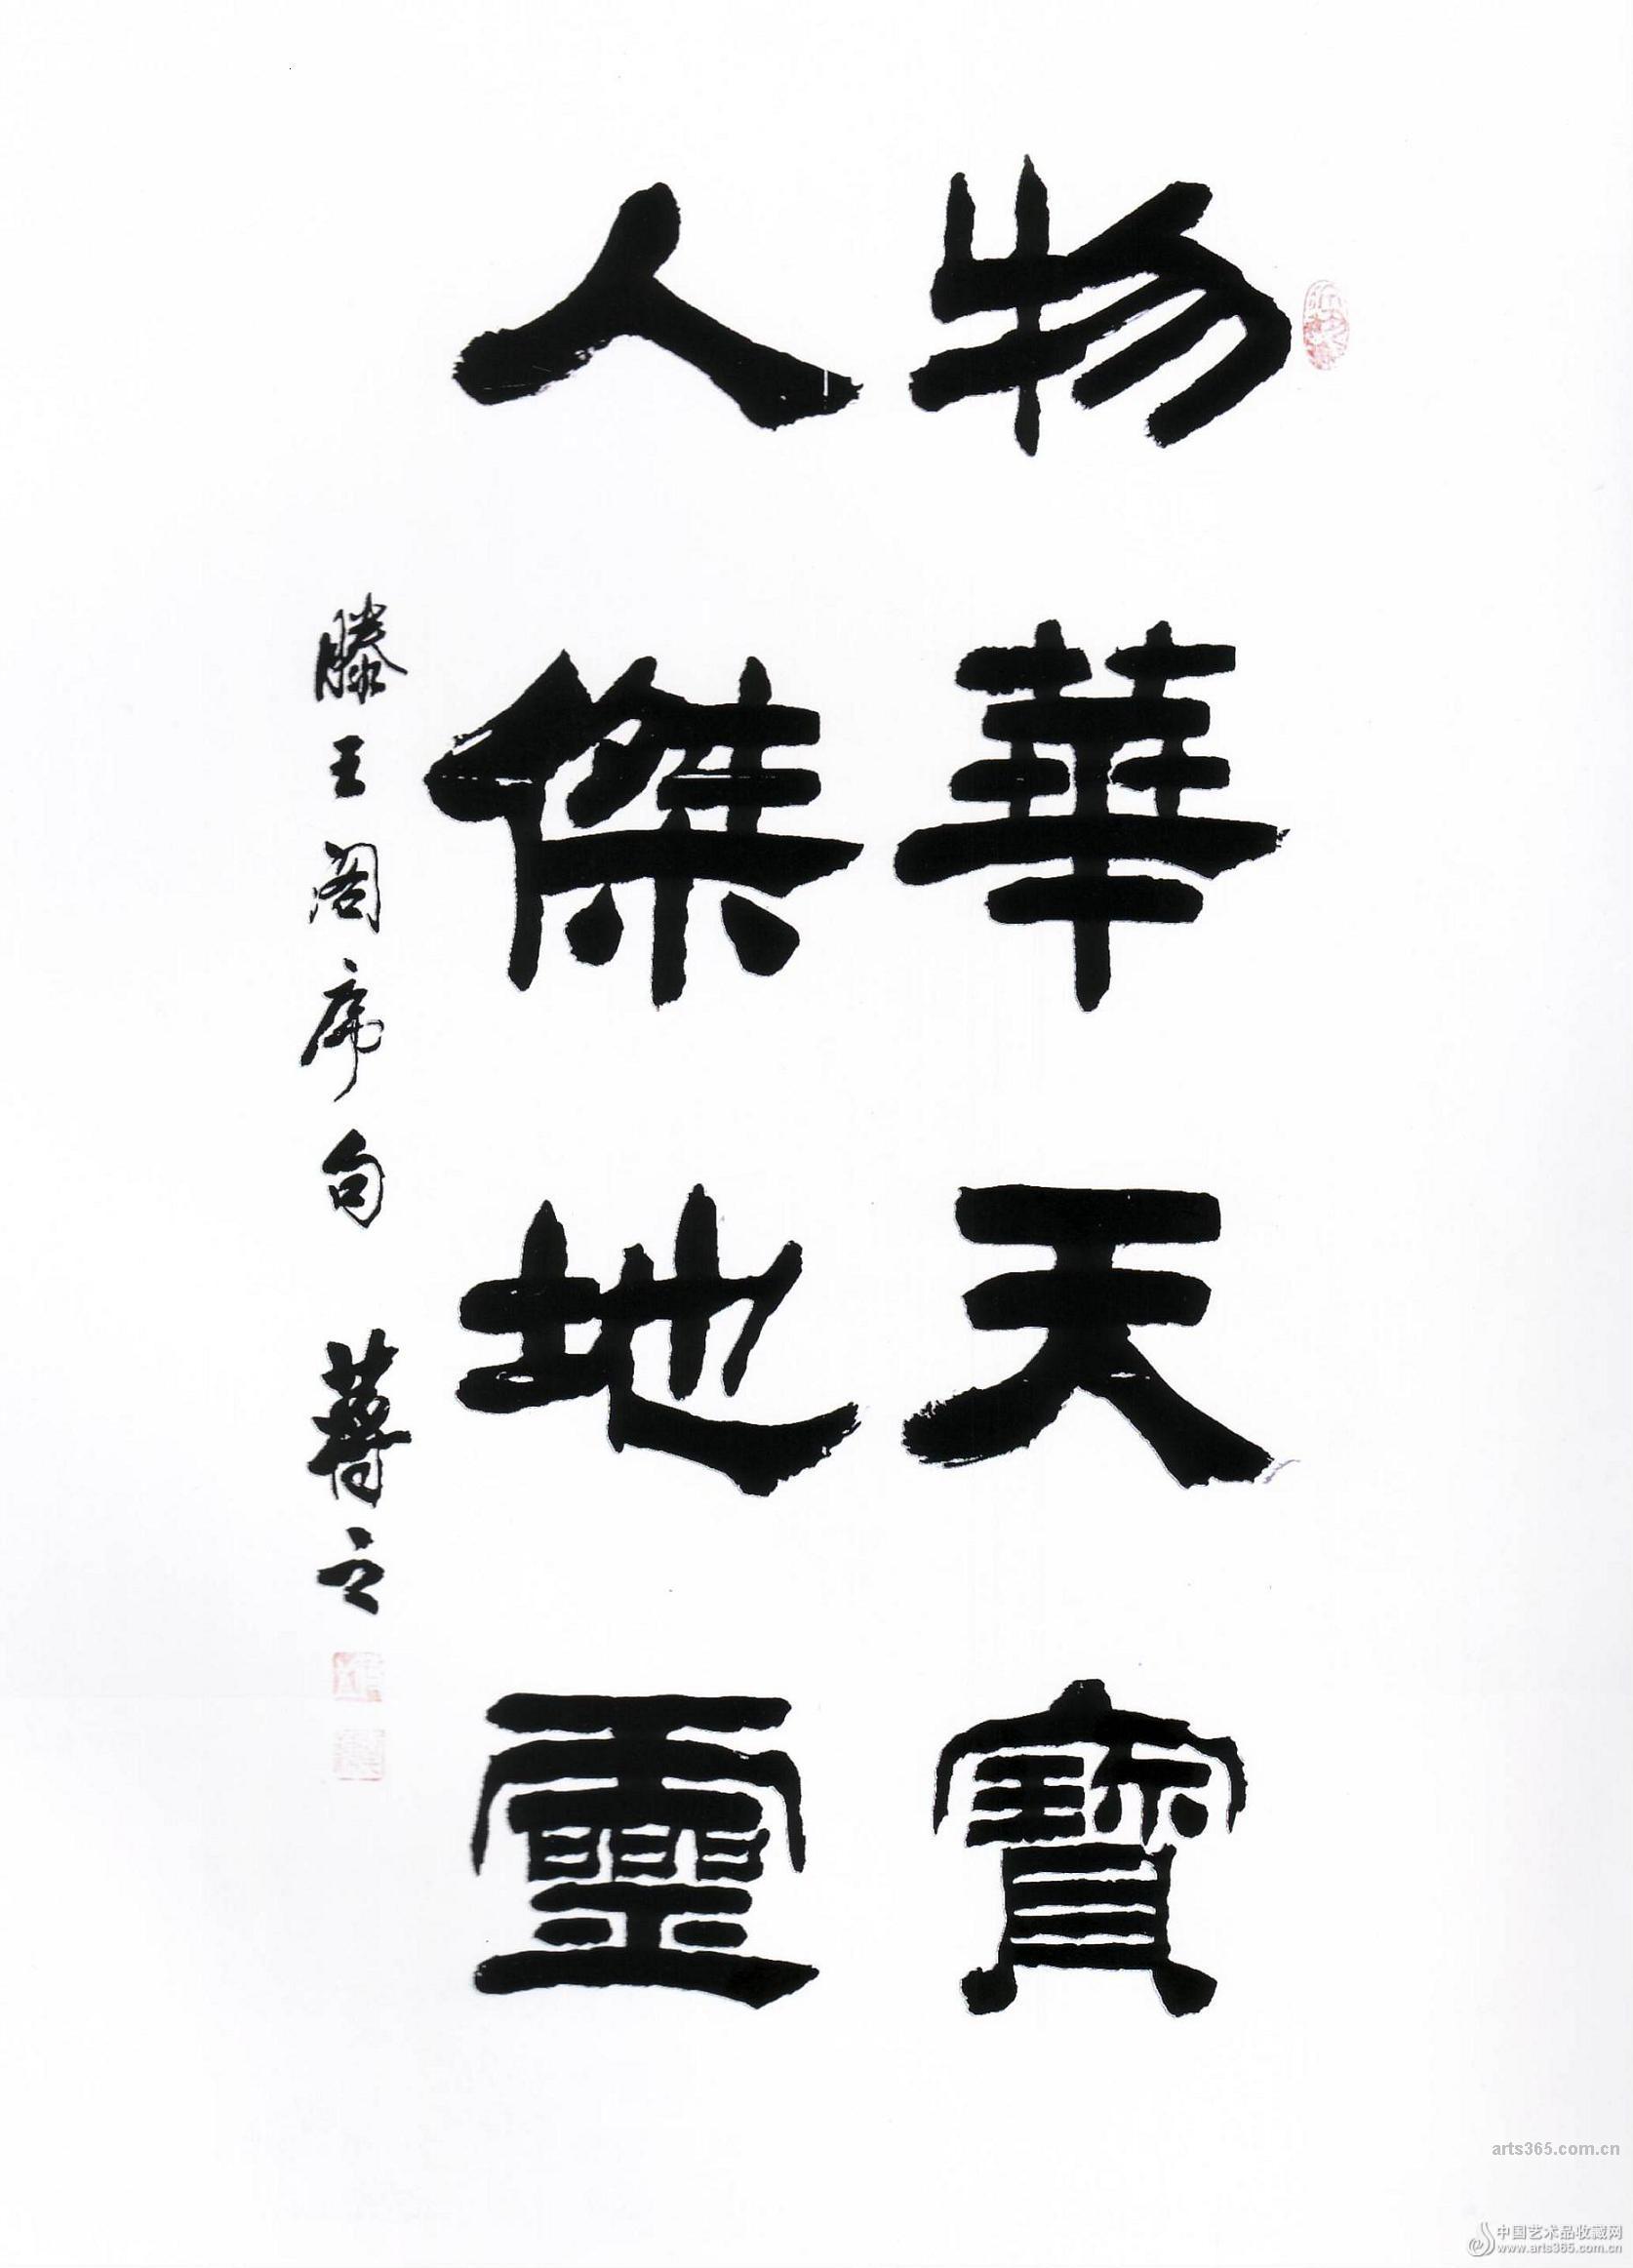 物華天寶
人傑地靈
滕王阁序句
arts365.com.cn
中国艺术品收藏网
www.arts365.com.cn